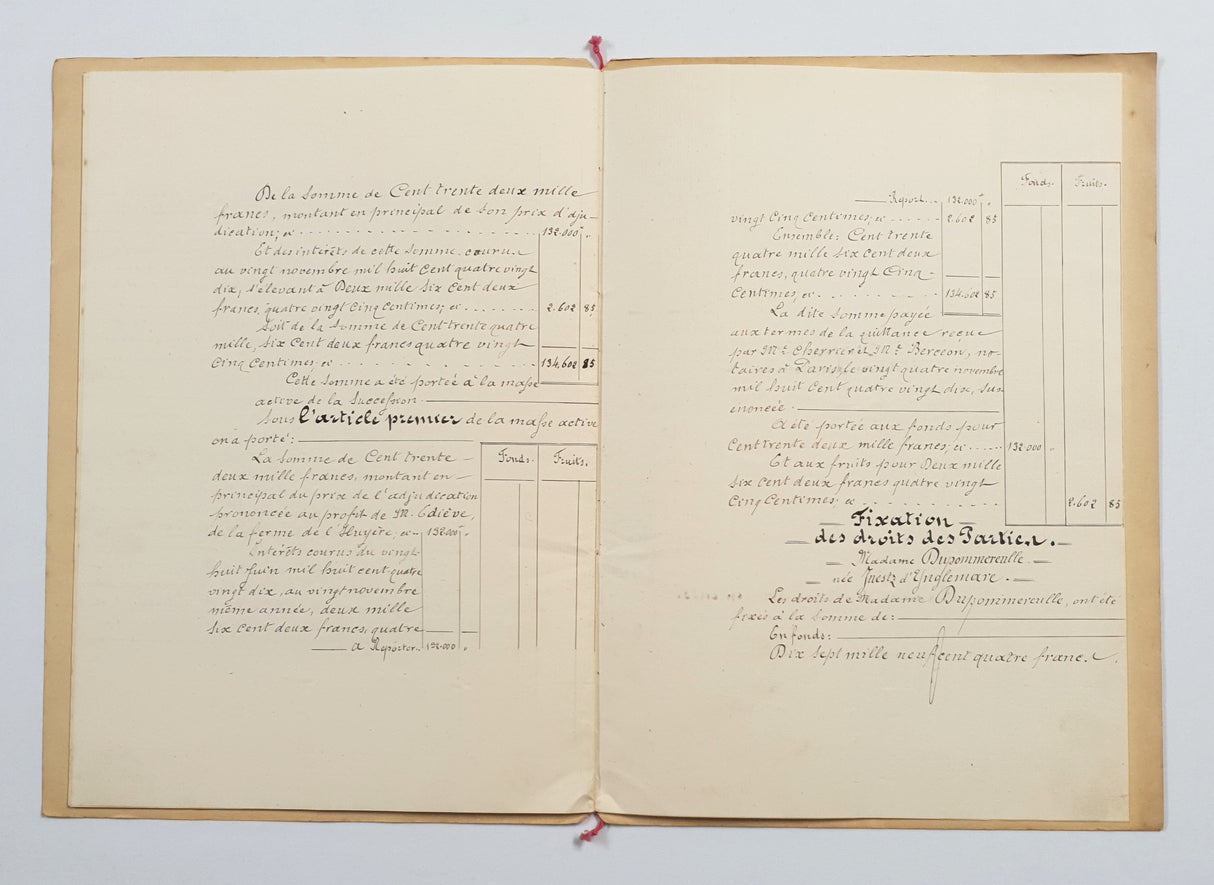 De la Somme de Cent trente deux mille
francs, montant en principal de Son prix d'adju-
dication, ci 132.000 "
Et des intérêts de cette Somme courus
au vingt novembre mil huit Cent quatre vingt
dix, s'élevant à Deux mille Six Cent deux
francs, quatre vingt Cinq Centimes, ci 2.602 85
Soit de la Somme de Cent trente quatre
mille, Six Cent deux francs quatre vingt
Cinq Centimes, ci 134.602 85
Cette Somme a été portée à la masse
active de la Succession.
Sous l'article premier de la masse active
on a porté:
Fonds. Fruits.
La Somme de Cent trente
deux mille francs, montant en
principal du prix de l'adjudication
prononcée au profit de M. Ediève,
de la ferme de l'Huyère, ci 132.000 "
Intérêts courus du vingt
huit Juin mil huit cent quatre
vingt dix, au vingt novembre
même année, deux mille
Six Cent deux francs, quatre
A Reporter 132.000 "
Fonds. Fruits.
Report 132.000 "
vingt Cinq Centimes, ci 2.602 85
Ensemble: Cent trente
quatre mille Six Cent deux
francs, quatre vingt Cinq
Centimes, ci 134.602 85
La dite Somme payée
aux termes de la quittance reçue
par Me Cherrier et Me Berceon, no-
taires à Paris, le vingt quatre novembre
mil huit Cent quatre vingt dix, Sus
énoncée.
A été portée aux fonds pour
Cent trente deux mille francs, ci 132.000 "
Et aux fruits pour Deux mille
Six Cent deux francs quatre vingt
Cinq Centimes, ci 2.602 85
Fixation
des droits des Parties.
Madame Dupommereulle
née d'Ynglemare.
Les droits de Madame Dupommereulle, ont été
fixés à la Somme de:
En fonds:
Dix Sept mille neuf Cent quatre francs.